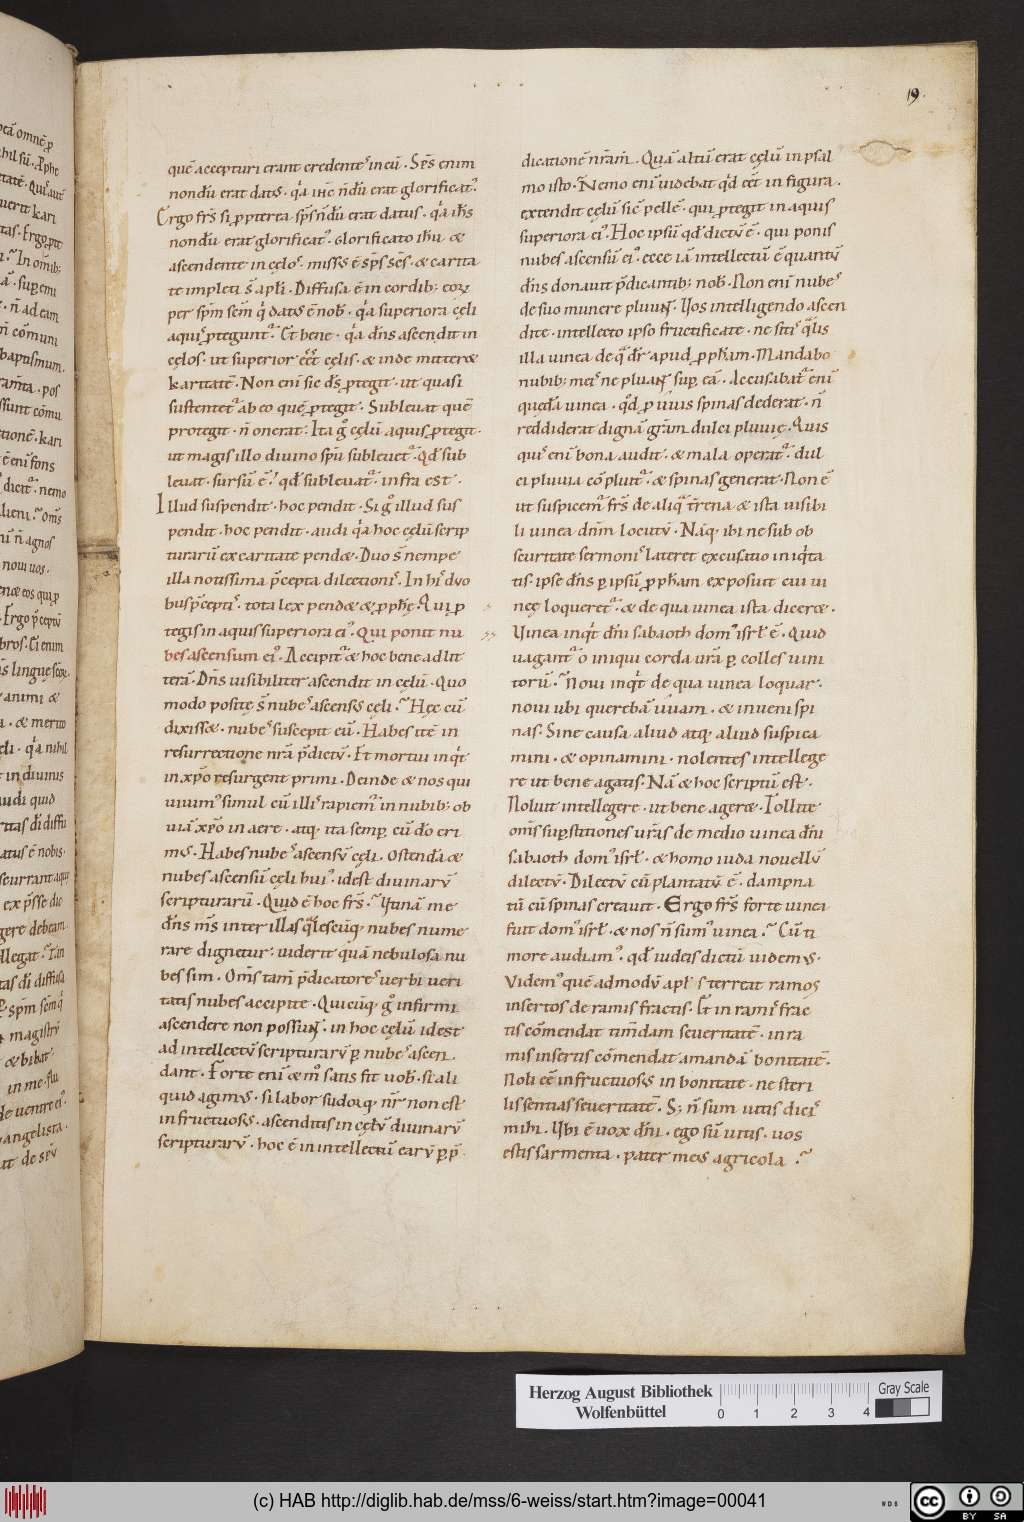 19.
quē accepturi erant credenteˢ in eū. Sp̄s enim
nondū erat datꝰ. qͥa ih̄c n̄dū erat glorificatꝰ
Ergo fr̄s si ꝓpterea sp̄s n̄dū erat datus. qͥa ih̄s
nondū erat glorificatꝰ. Glorificato ih̄u &
ascendente in cęloˢ. missꝰ ē sp̄s sc̄s. & carita
te impleti s̄ apl̄i. Diffusa ē in cordib; eoꝝ
per sp̄m sc̄m qͥ datꝰ ē nob̄. qͥa superiora cęli
aquiˢ ꝓteguntᷣ. Et bene. qͥa dn̄s ascendit in
cęlos. ut superior eēt cęlis. & inde mitter&
karitatē. Non eni sic ds̄ ꝓtegit. ut quasi
sustentetᷣ ab eo quē ꝓtegit. Sublevat quē
protegit. n̄ onerat. Ita gͦ cęlū aquis ꝓtegit.
ut magis illo divino sp̄u sublevetᷣ. Qd̄ sub
levat. sursū ē. qd̄ sublevatᷣ. infra est.
Illud suspendit. hoc pendit. Si gͦ illud sus
pendit. hoc pendit. audi qͥa hoc cęlū scrip
turarū ex caritate pend&. Duo s̄ nempe
illa notissima p̄cepta dilectioniˢ. In hiˢ duo
bus p̄ceptiˢ. tota lex pend& & ꝓph̄ę. Qui ꝓ
tegis in aquis superiora eiꝰ. Qui ponit nu
bes ascensum eiꝰ. Accipitᷣ & hoc bene ad lit
terā. Dn̄s visibiliter ascendit in cęlū. Quo
modo positę s̄ nubeˢ ascensꝰ cęli. Hęc cū
dixiss&. nubeˢ suscepit eū. Habes itē in
resurrectione nr̄a p̄dictū. Et mortui inqͥt
in xp̄o resurgent primi. Deinde & nos qui
vivimꝰ simul cū illiˢ rapiemᷣ in nubib; ob
viā xp̄o in aere. atq; ita semꝑ cū dn̄o eri
mꝰ. Habes nubeˢ ascensū cęli. Ostendā &
nubes ascensū cęli huiꝰ. idest divinarū
scripturarū. Quid ē hoc fr̄s. Utinā me
dn̄s m̄s inter illas qͣlescūq; nubes nume
rare dignetur. viderit quā nebulosa nu
bes sim. Om̄s tam̄ p̄dicatoreˢ verbi veri
tatis nubes accipite. Quicūq; gͦ infirmi
ascendere non possunt. in hoc cęlū idest
ad intellectū scripturarū ꝑ nubeˢ ascen
dant. Forte eni & mͦ satis fit vob̄. si ali
quid agimꝰ. si labor sudorq; nr̄ non est
infructuosꝰ. ascenditis in cęlū divinarū
scripturarū. hoc ē in intellectū earū ꝑ p̄
dicationē nr̄am. Quā altū erat cęlū in psal
mo isto. Nemo eni videbat qͥd eēt in figura.
extendit cęlū sic pellē. qui ꝓtegit in aquis
superiora eiꝰ. Hoc ipsū qd̄ dictū ē. qui ponis
nubes ascensū eiꝰ. ecce iā intellectū ē quantū
dn̄s donavit p̄dicantib; nob̄. Non eni nubeˢ
de suo munere pluunt. Vos intelligendo ascen
dite. intellecto ipso fructificate. ne sitiˢ qͣlis
illa vinea de qͣ dr̄ apud ꝓph̄am. Mandabo
nubib; meiˢ ne pluant suꝑ eā. Accusabatᷣ eni
quędā vinea. qd̄ ꝓ uvis spinas dederat. n̄
reddiderat dignā gr̄am dulci pluvię. Quis
quiˢ eni bona audit. & mala operatᷣ. dul
ci pluvia cōpluitᷣ. & spinas generat. Non ē
ut suspicemᷣ fr̄s de aliqͣ t̄rrena & ista visibi
li vinea dn̄m locutū. Nāq; ibi ne sub ob
scuritate sermoniˢ lateret excusatio iniqͥta
tis. ipse dn̄s ꝑ ipsū ꝓph̄am exposuit cui vi
neę loqueretᷣ. & de qua vinea ista dicer&.
Vinea inqͥt dn̄i sabaoth domꝰ isrł ē. Quid
vagantᷣ o iniqui corda vr̄a ꝑ colles vini
torū. Novi inqͥt de qua vinea loquar.
novi ubi querebā uvam. & inveni spi
nas. Sine causa aliud atq; aliud suspica
mini. & opinamini. nolentes intellege
re ut bene agatis. Nā & hoc scriptū est.
Noluit intellegere. ut bene ager&. Tollite
om̄s suꝑstitiones vr̄as de medio vinea dn̄i
sabaoth domꝰ isrł. & homo iuda novellū
dilectū. Dilectū cū plantatū ē. dampna
tū cū spinas creavit. Ergo fr̄s forte vinea
fuit domꝰ isrł. & nos n̄ sumꝰ vinea. Cū ti
more audiamꝰ. qd̄ iudeis dictū videmꝰ.
Videmꝰ quē admodū apl̄s terreat ramos
insertos de ramis fractis. Et in ramiˢ frac
tis cōmendat timēdam severitatē. in ra
mis insertis cōmendat amandā bonitatē.
Noli eē infructuosꝰ in bonitate. ne steri
lis sentias severitatē. S; n̄ sum vitis diciˢ
mihi. Ubi ē vox dn̄i. ego sū vitis. vos
estis sarmenta. pater meꝰ agricola.
Herzog August Bibliothek
Wolfenbüttel
0 1 2 3 4
Gray Scale
(c) HAB http://diglib.hab.de/mss/6-weiss/start.htm?image=00041
WDB
cc
BY SA